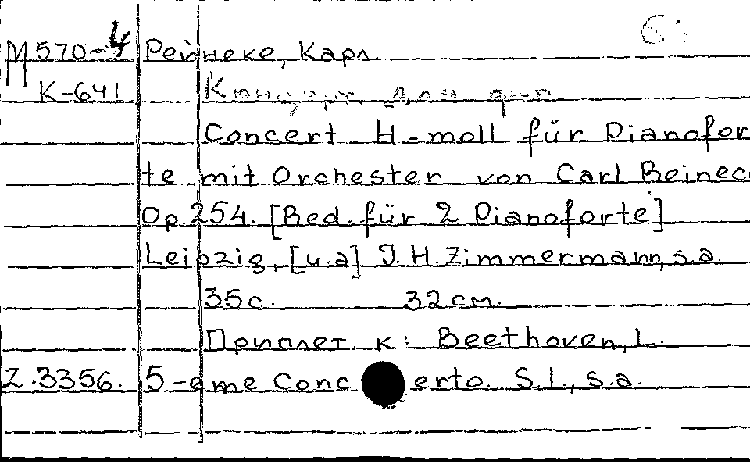 М570-4 Рейнеке, Карл
К-641 Концерт для фп
Concert H-moll für Pianofor
te mit Orchester von Carl Reinec
Op 254. [Bed. für 2 Pianoforte]
Leipzig, [u.a] J.H. Zimmermann, s.a.
35с. 32см.
Приплет к: Beethoven, L.
Z.3356. 5-eme Concerto. S.l., s.a.